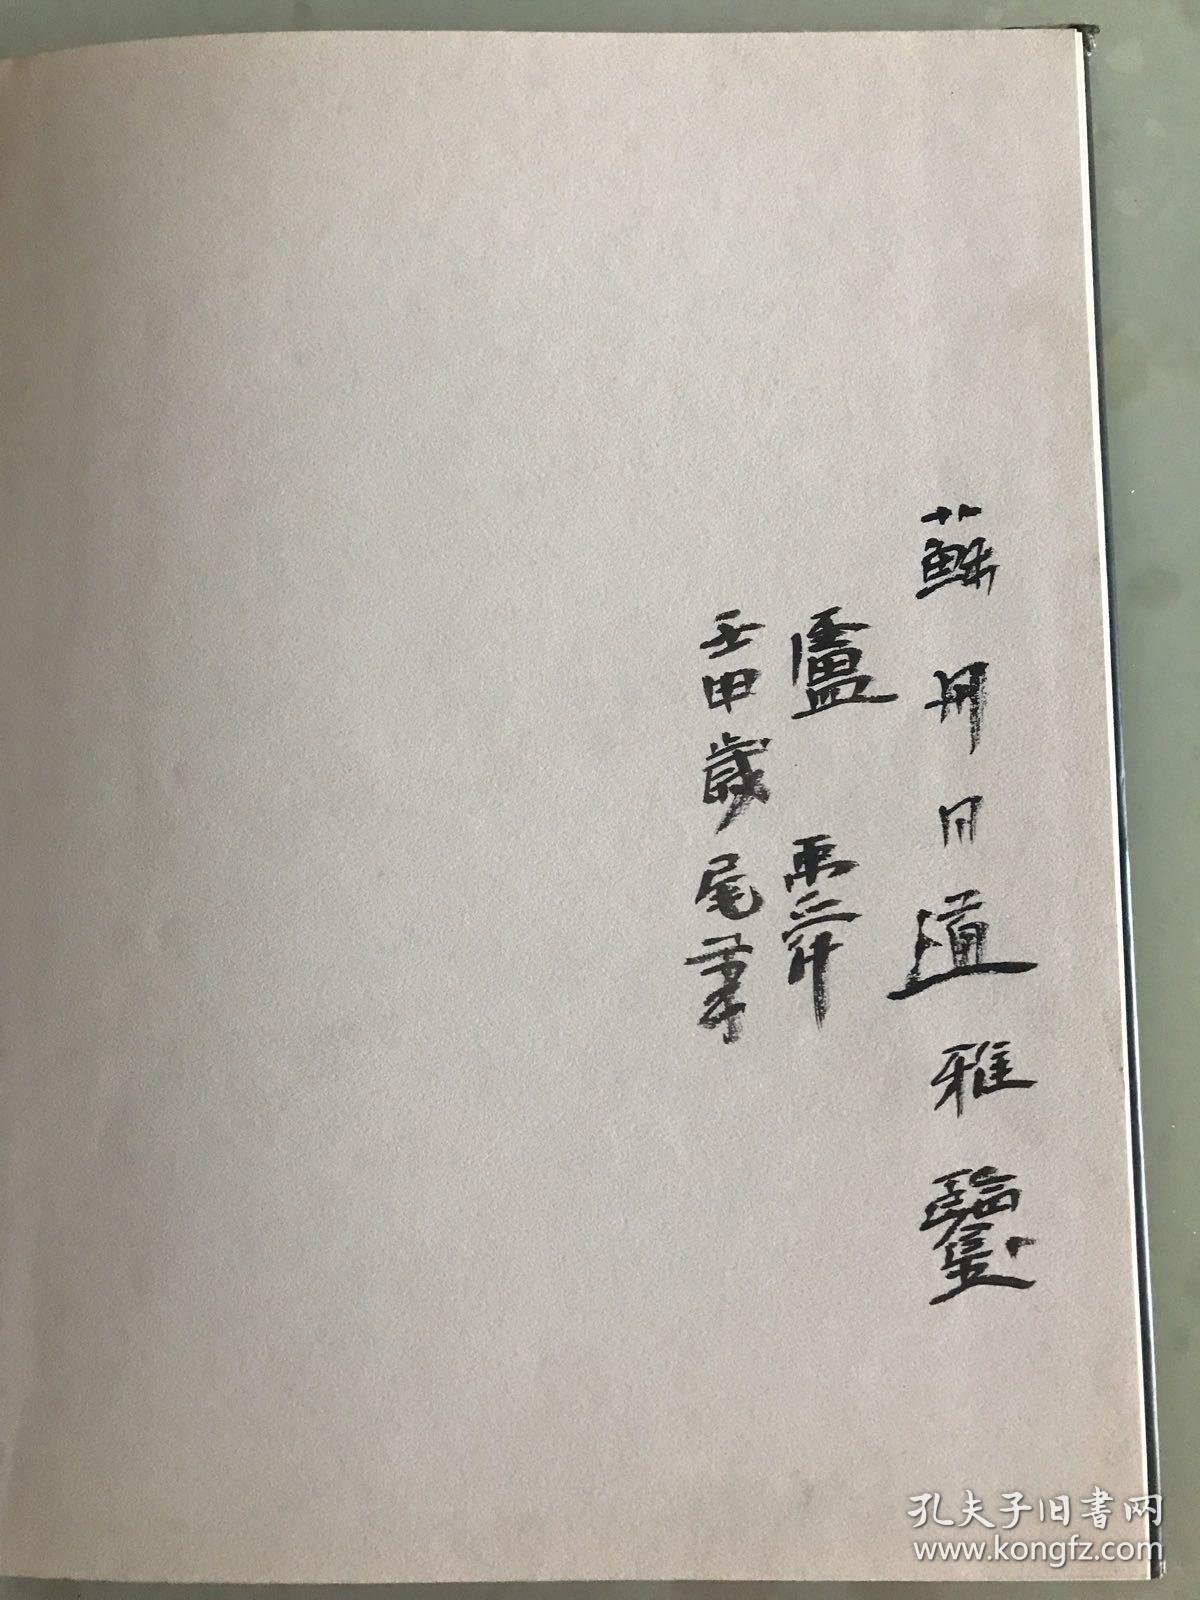 蘇同道雅鑒
盧禹舜
壬申歲尾筆
孔夫子旧書网
www.kongfz.com